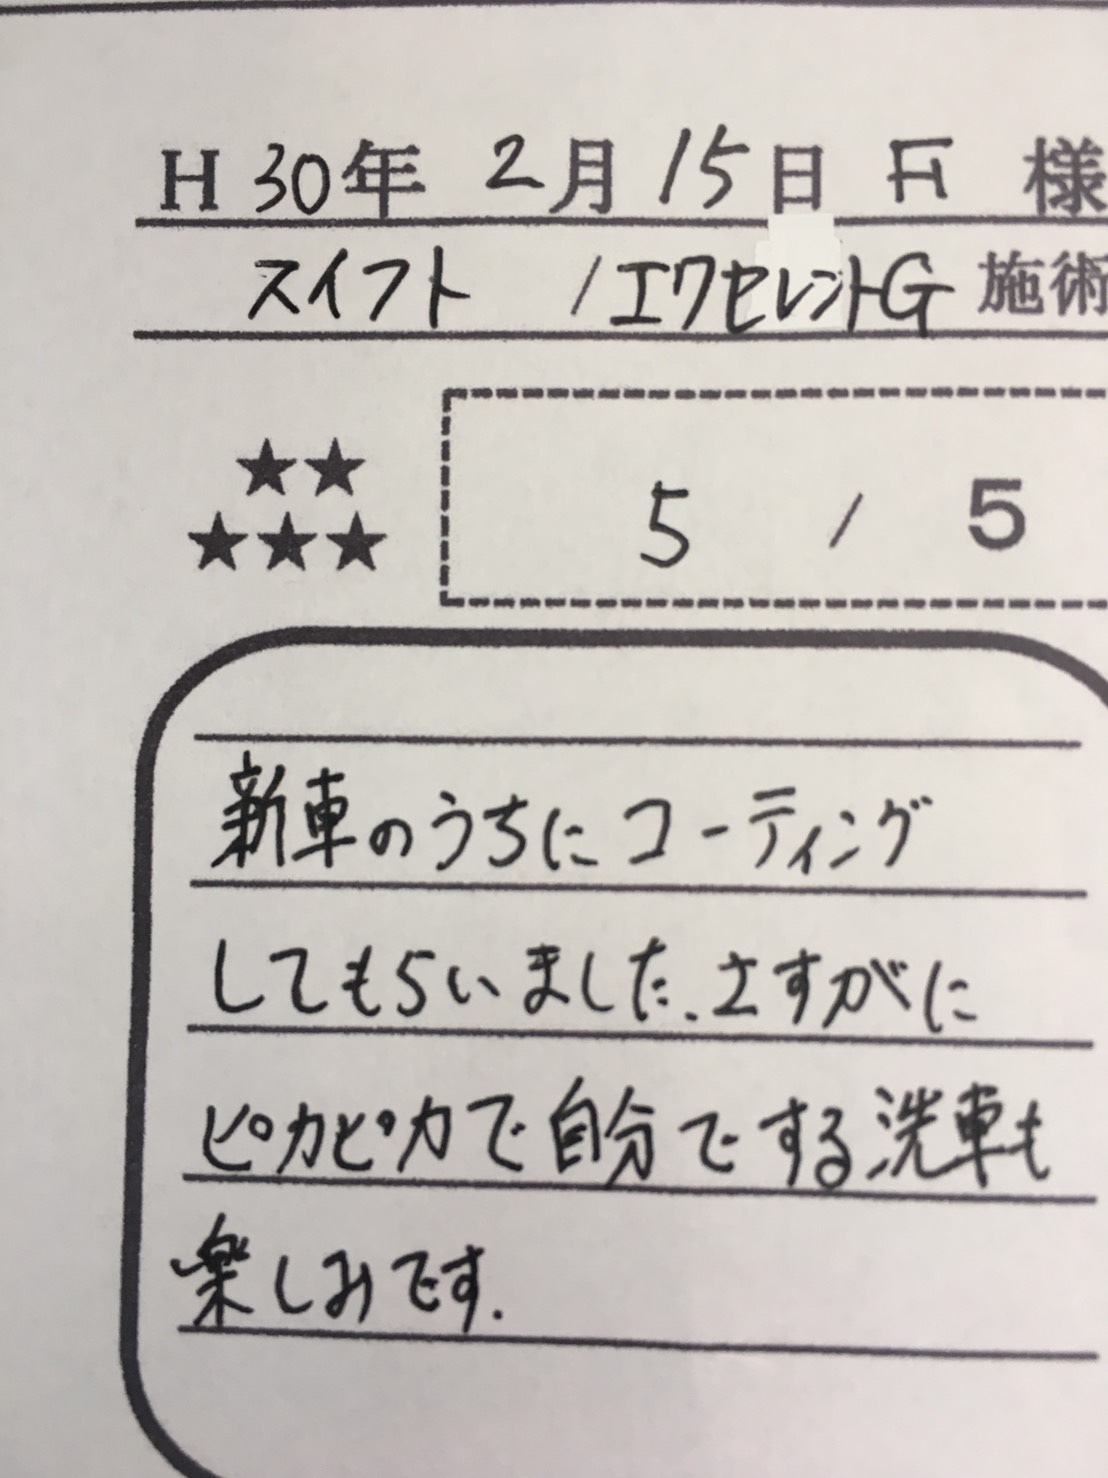 H 30年 2月 15日 F 様
スイフト / エクセレントG 施術
★★
★★★
5 / 5
新車のうちにコーティング
してもらいました.さすがに
ピカピカで自分でする洗車も
楽しみです.